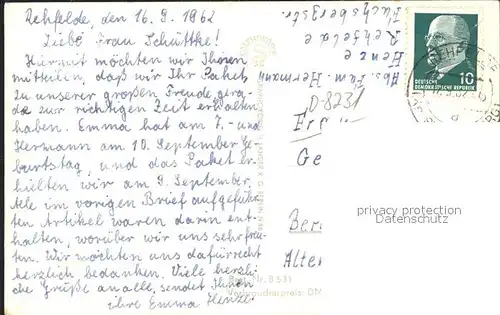 Rehfelde, den 16. 9. 1962
Liebe Frau Schüttke!
Hiermit möchten wir Ihnen
mitteilen, daß wir Ihr Paket,
zu unserer großen Freude, gera-
de zur richtigen Zeit erhalten
haben. Emma hat am 7.- und
Hermann am 10. September Ge-
burtstag, und das Paket er-
hielten wir am 9. September.
Alle im vorigen Brief aufgeführ-
ten Artikel waren darin ent-
halten, worüber wir uns sehr freu-
ten. Wir möchten uns dafür recht
herzlich bedanken. Viele herzli-
che Grüße an alle, sendet Ihnen
ihre Emma Henze.
Abs. Fam. Hermann
Henze
Rehfelde
Fuchsbergstr.
DEUTSCHE
DEMOKRATISCHE REPUBLIK
10
D-8231
Fr
Ge
Ber
Alter
privacy protection
Datenschutz
Best.-Nr. B 531
Verbraucherpreis: DM